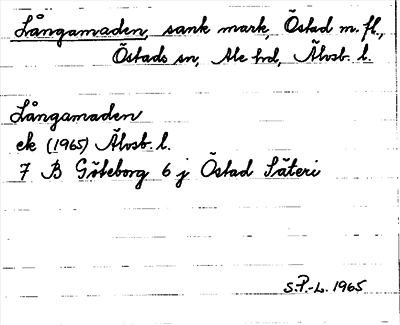 Långamaden, sank mark, Östad m. fl.,
Östads sn, Ale hd, Älvsb. l.
Långamaden
ek (1965) Älvsb. l.
7 B Göteborg 6 j Östad Säteri
S.P.-L. 1965